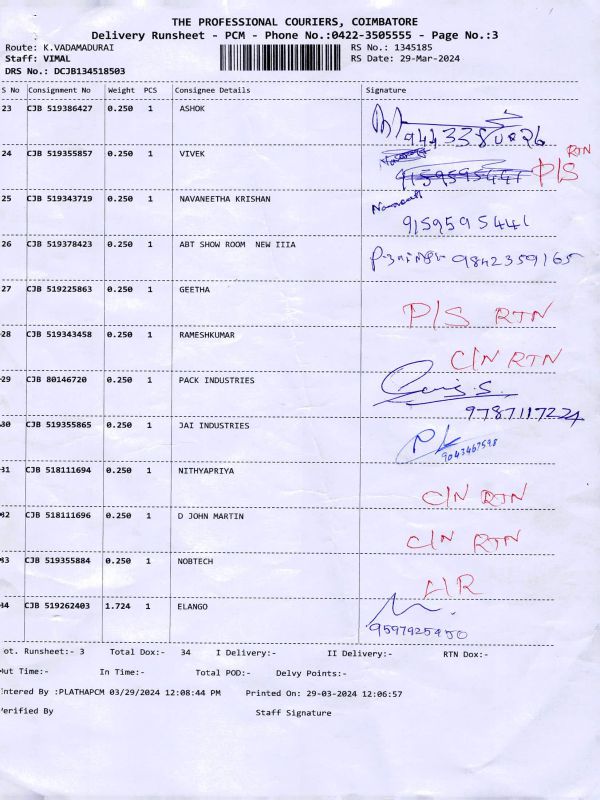 THE PROFESSIONAL COURIERS, COIMBATORE
Delivery Runsheet - PCM - Phone No.:0422-3505555 - Page No.:3
Route: K.VADAMADURAI RS No.: 1345185
Staff: VIMAL RS Date: 29-Mar-2024
DRS No.: DCJB134518503
S No Consignment No Weight PCS Consignee Details Signature
23 CJB 519386427 0.250 1 ASHOK
24 CJB 519355857 0.250 1 VIVEK 9159595441 P/S RTN
25 CJB 519343719 0.250 1 NAVANEETHA KRISHAN
9159595441
26 CJB 519378423 0.250 1 ABT SHOW ROOM NEW IIIA 9842359165
27 CJB 519225863 0.250 1 GEETHA
P/S RTN
28 CJB 519343458 0.250 1 RAMESHKUMAR
C/N RTN
29 CJB 80146720 0.250 1 PACK INDUSTRIES
9787117224
30 CJB 519355865 0.250 1 JAI INDUSTRIES
9043467598
31 CJB 518111694 0.250 1 NITHYAPRIYA
C/N RTN
32 CJB 518111696 0.250 1 D JOHN MARTIN
C/N RTN
33 CJB 519355884 0.250 1 NOBTECH
A/R
34 CJB 519262403 1.724 1 ELANGO
ot. Runsheet:- 3 Total Dox:- 34 I Delivery:- II Delivery:- RTN Dox:-
ut Time:- In Time:- Total POD:- Delvy Points:-
ntered By :PLATHAPCM 03/29/2024 12:08:44 PM Printed On: 29-03-2024 12:06:57
erified By Staff Signature